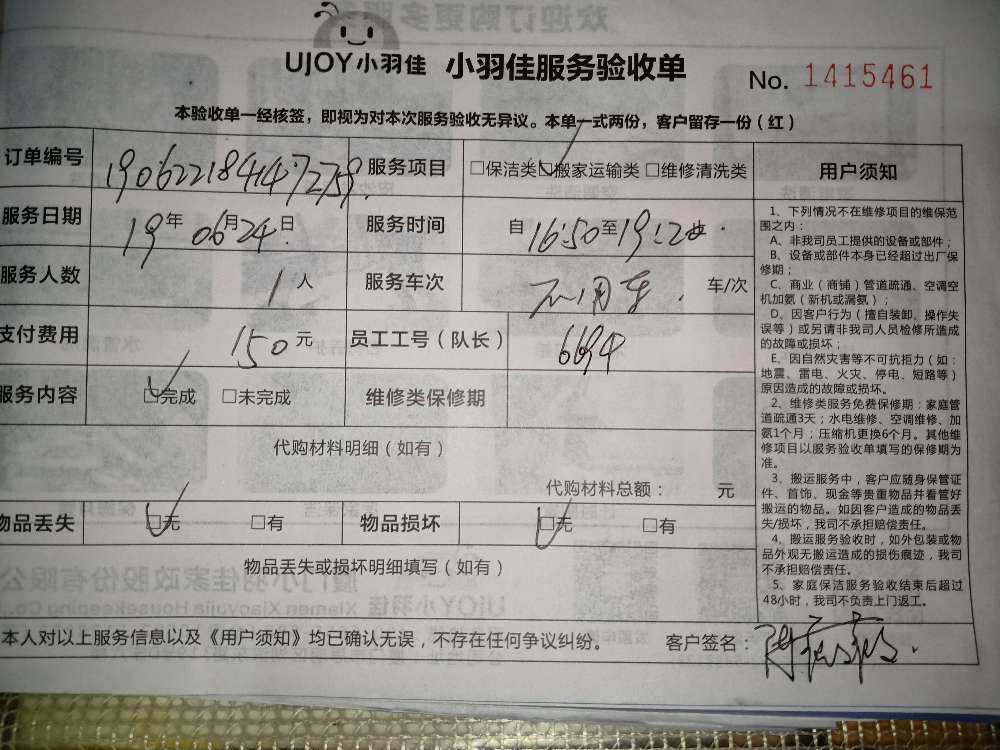 UJOY小羽佳 小羽佳服务验收单 No. 1415461
本验收单一经核签，即视为对本次服务验收无异议。本单一式两份，客户留存一份（红）
订单编号 服务项目 □保洁类 ☑搬家运输类 □维修清洗类
服务日期 19年 06月24日 服务时间 自16:50至19:20
服务人数 1人 服务车次 不用车. 车/次
支付费用 150元 员工工号（队长） 6694
服务内容 ☑完成 □未完成 维修类保修期
代购材料明细（如有）
代购材料总额： 元
物品丢失 ☑无 □有 物品损坏 ☑无 □有
物品丢失或损坏明细填写（如有）
本人对以上服务信息以及《用户须知》均已确认无误，不存在任何争议纠纷。 客户签名：
用户须知
1、下列情况不在维修项目的维保范
围之内：
A、非我司员工提供的设备或部件；
B、设备或部件本身已经超过出厂保
修期；
C、商业（商铺）管道疏通、空调空
机加氨（新机或漏氨）；
D、因客户行为（擅自装卸、操作失
误等）或另请非我司人员检修所造成
的故障或损坏；
E、因自然灾害等不可抗拒力（如：
地震、雷电、火灾、停电、短路等）
原因造成的故障或损坏.
2、维修类服务免费保修期：家庭管
道疏通3天；水电维修、空调维修、加
氨1个月；压缩机更换6个月。其他维
修项目以服务验收单填写的保修期为
准。
3、搬运服务中，客户应随身保管证
件、首饰、现金等贵重物品并看管好
搬运的物品。如因客户造成的物品丢
失/损坏，我司不承担赔偿责任。
4、搬运服务验收时，如外包装或物
品外观无搬运造成的损伤痕迹，我司
不承担赔偿责任。
5、家庭保洁服务验收结束后超过
48小时，我司不负责上门返工。